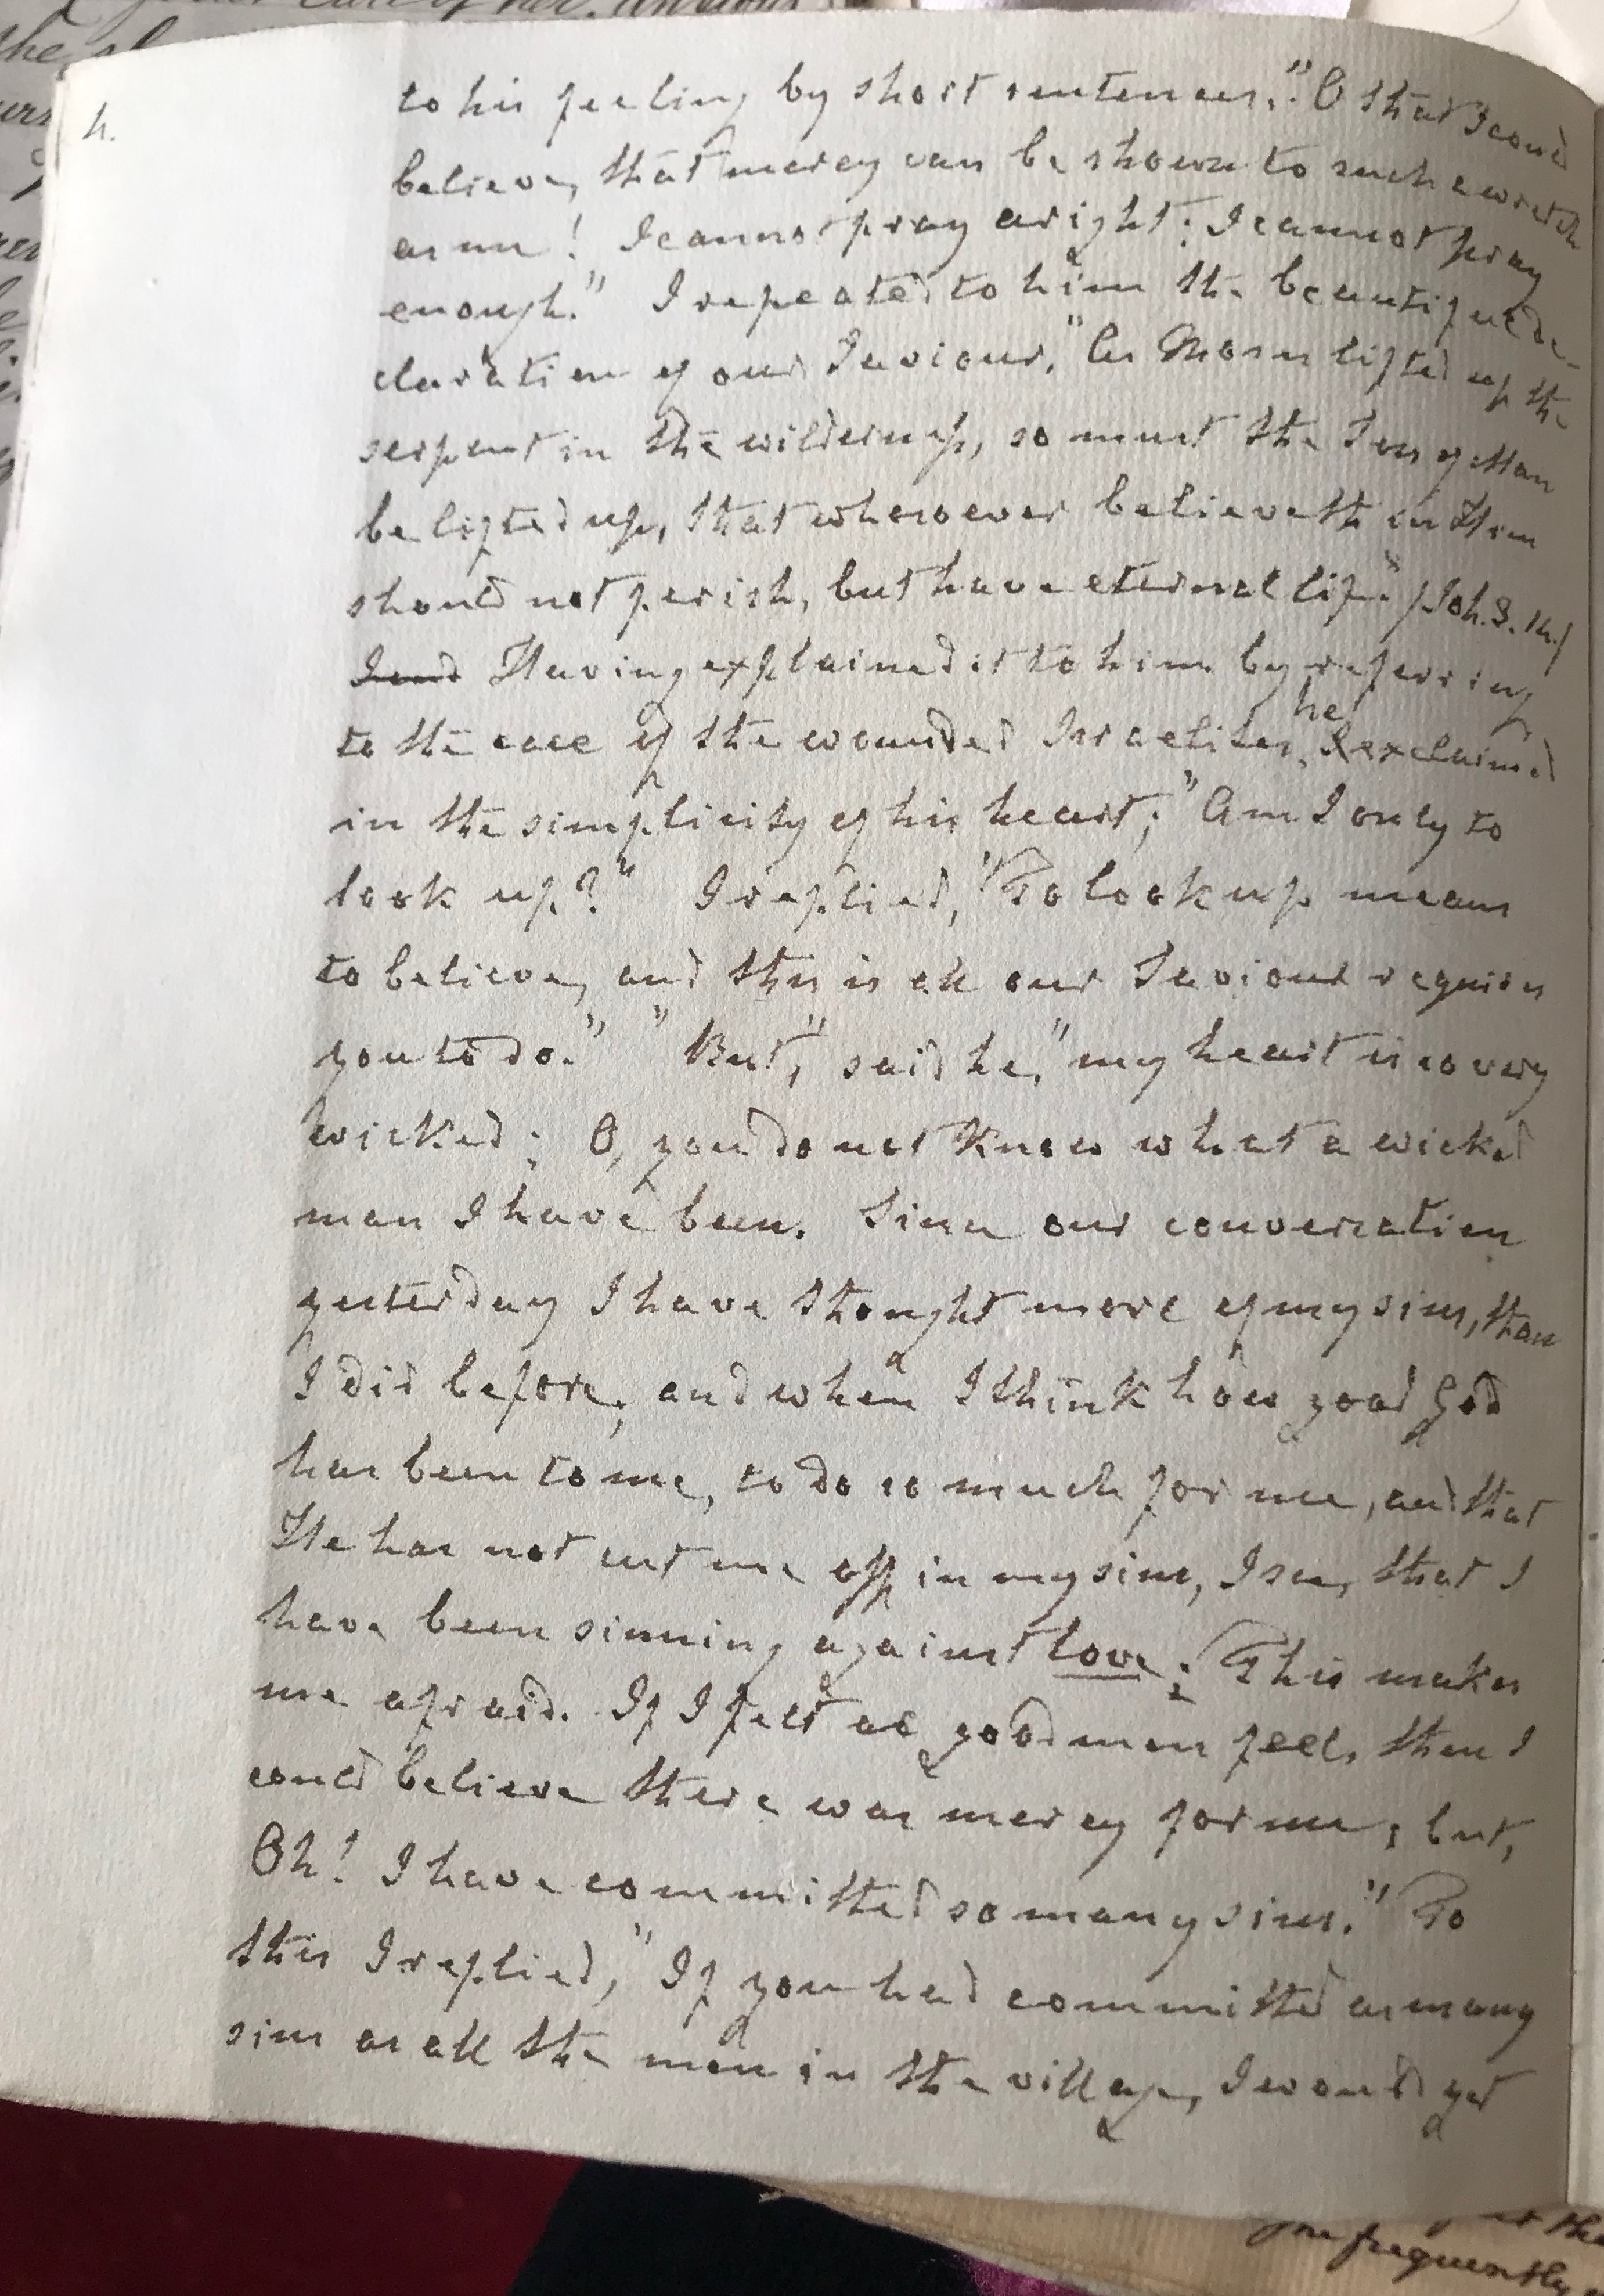 h.
to his feeling by short sentences. "O that I could
believe, that mercy can be shown to such a wretch
as me! I cannot pray aright; I cannot pray
enough." I repeated to him the beautiful de-
claration of our Saviour, "As Moses lifted up the
serpent in the wilderness, so must the Son of Man
be lifted up, that whosoever believeth in Him
should not perish, but have eternal life." (Joh. 3. 14.)
Having explained it to him by referring
to the case of the wounded Israelites, he exclaimed
in the simplicity of his heart; "Am I only to
look up?" I replied, "To look up means
to believe, and this is all our Saviour requires
you to do." "But," said he, "my heart is so very
wicked; O, you do not know what a wicked
man I have been. Since our conversation
yesterday I have thought more of my sins, than
I did before; and when I think how good God
has been to me, to do so much for me, and that
He has not cut me off in my sins, I see, that I
have been sinning against love; This makes
me afraid. If I felt as good men feel, then I
could believe there was mercy for me; but,
Oh! I have committed so many sins." To
this I replied, "If you had committed as many
sins as all the men in the village, I would yet
you frequently